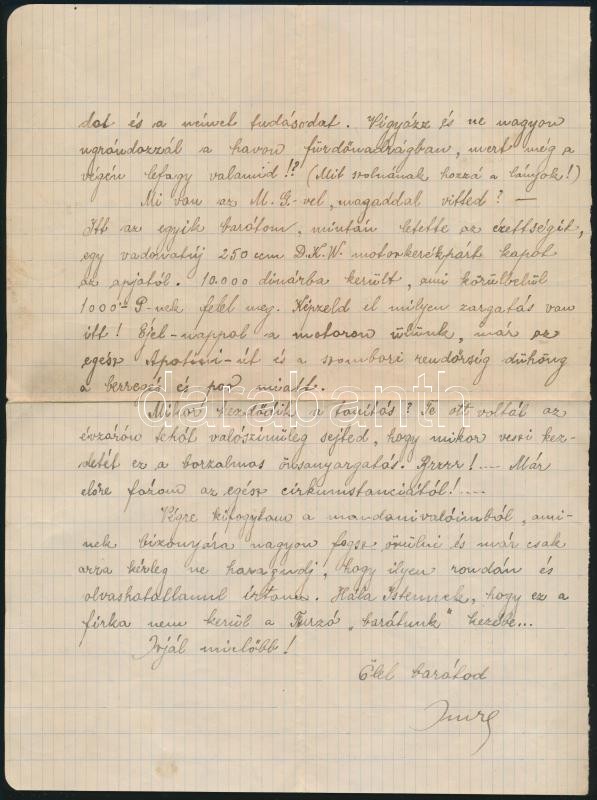 dat és a német tudásodat. Vigyázz és ne nagyon
ugrándozzál a havon fürdőnadrágban, mert még a
végén lefagy valamid!? (Mit szólnának hozzá a lányok!)
Mi van az M.G.-vel, magaddal vitted? —
Itt az egyik barátom, miután letette az érettségit,
egy vadonatúj 250 ccm D.K.W. motorkerékpárt kapott
az apjától. 10.000 dinárba került, ami körülbelül
1000 P-nek felel meg. Képzeld el milyen zargatás van
itt! Éjel-nappal a motoron ülünk, már az
egész Apatini-út és a zombori rendőrség dühöng
a berregés és por miatt.
Mikor kezdődik a tanítás? Te ott voltál az
évzárón tehát valószínűleg sejted, hogy mikor veszi kez-
detét ez a borzalmas önsanyargatás. Brrrr!.... Már
előre fázom az egész cirkumstanciától!....
Végre kifogytam a mondanivalóimból, ami-
nek bizonyára nagyon fogsz örülni és már csak
arra kérlek ne haragudj, hogy ilyen rondán és
olvashatatlanul írtam. Hála Istennek, hogy ez a
firka nem kerül a Turzó „barátunk" kezébe...
Írjál mielőbb!
Ölel barátod
Imre
darabanth